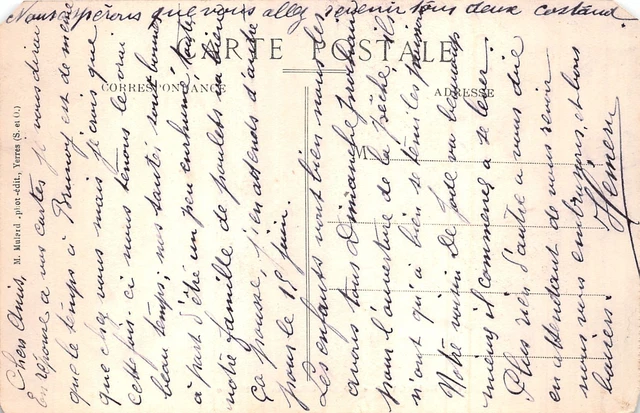 CARTE POSTALE
CORRESPONDANCE
ADRESSE
M
M. Mulard, phot.-édit., Yerres (S. et O.)
Chers Amis,
En réponse à vos cartes je vous dirai
que le temps à Brunoy est de même
que chez vous mais je crois que
cette fois-ci nous tenons le vrai
beau temps; nos santés sont bonnes
à part d'être un peu enrhumé toute
notre famille de poulets va bien
Ça pousse, j'en attends d'autre
pour le 15 juin.
Les enfants vont bien nous les
avons tous Dimanche prochain
pour l'ouverture de la pêche, ils
n'ont qu'à bien se tenir les
Notre voisin De va beaucoup
mieux il commence à se lever.
Plus rien d'autre à vous dire
en attendant de vous revoir
nous vous embrassons, et bons
baisers.
Hémery
Nous espérons que vous allez revenir tous deux costaud.